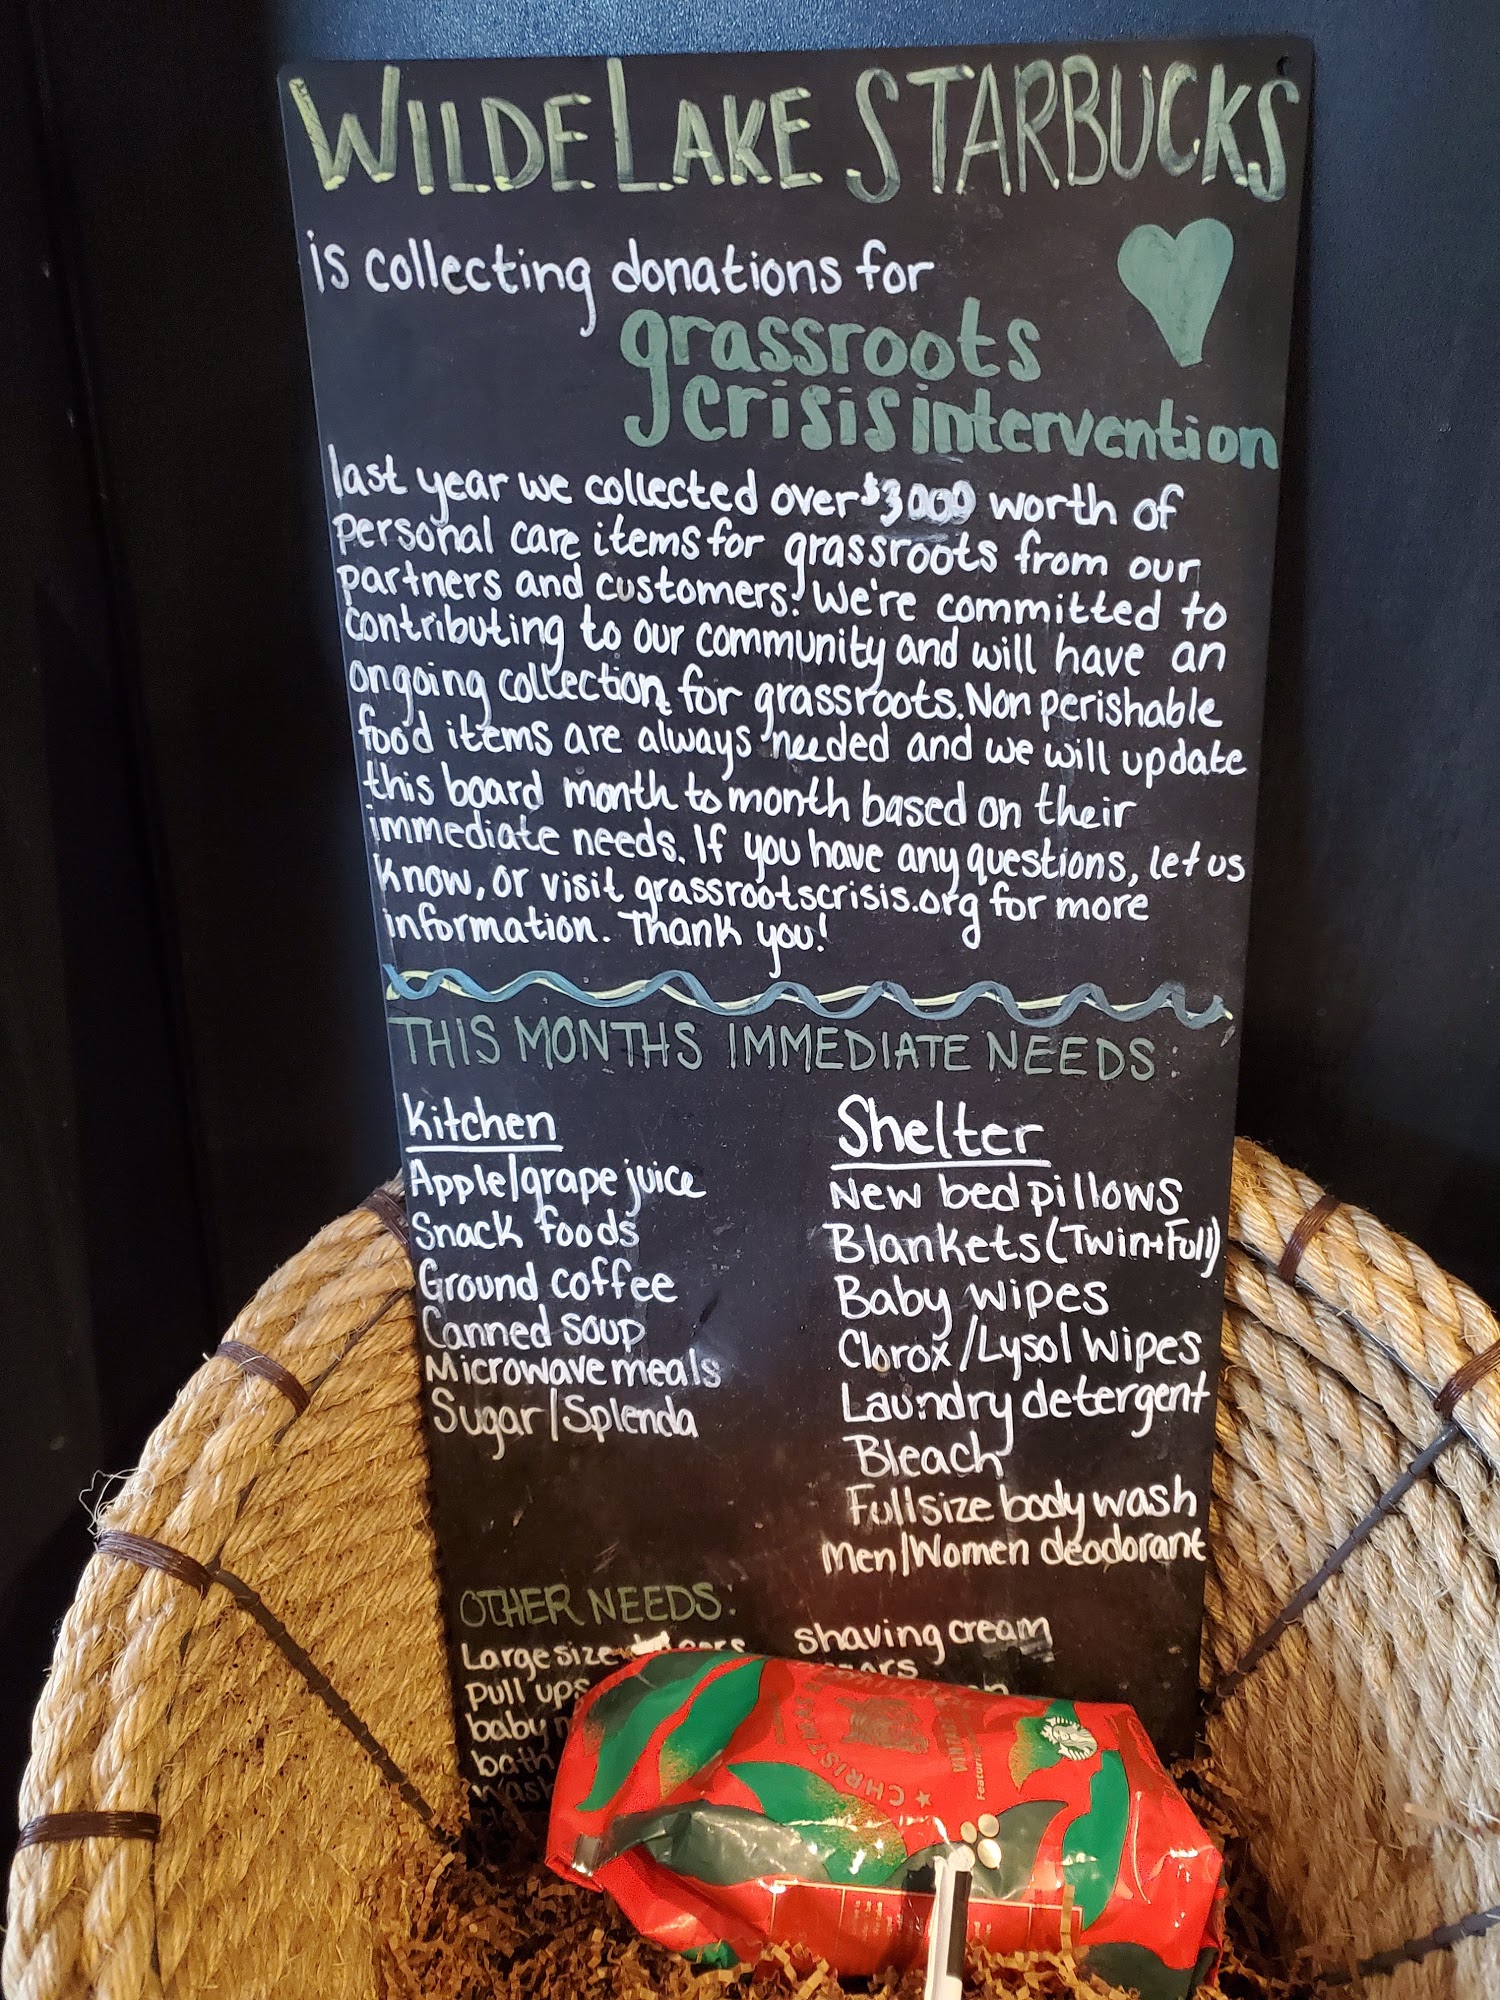 WILDE LAKE STARBUCKS
is collecting donations for
grassroots
crisis intervention
last year we collected over $3000 worth of
personal care items for grassroots from our
partners and customers! We're committed to
contributing to our community and will have an
ongoing collection for grassroots. Non perishable
food items are always needed and we will update
this board month to month based on their
immediate needs. If you have any questions, let us
know, or visit grassrootscrisis.org for more
information. Thank you!
THIS MONTHS IMMEDIATE NEEDS:
Kitchen
Apple/grape juice
Snack foods
Ground coffee
Canned soup
Microwave meals
Sugar/Splenda
Shelter
New bed pillows
Blankets (Twin+Full)
Baby wipes
Clorox/Lysol Wipes
Laundry detergent
Bleach
Full size body wash
Men/Women deodorant
OTHER NEEDS:
Large size
pull ups
baby
bath
wash
shaving cream
CHRISTMAS